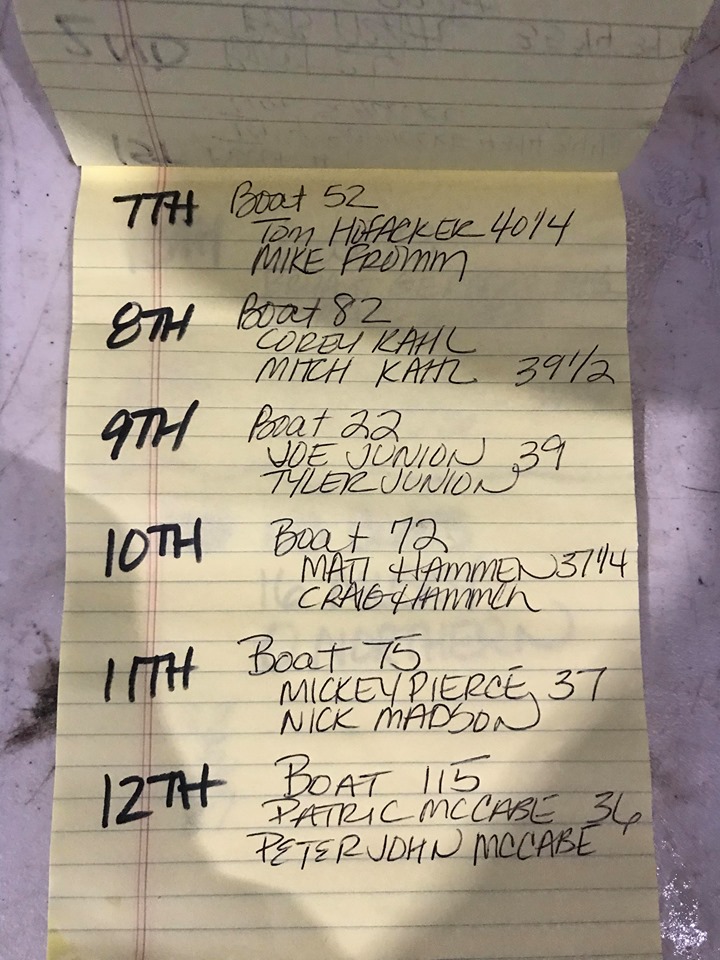 7TH Boat 52
TOM HOFACKER 40 1/4
MIKE FROMM
8TH Boat 82
COREY KAHL
MITCH KAHL 39 1/2
9TH Boat 22
JOE JUNION 39
TYLER JUNION
10TH Boat 72
MATT HAMMEN 37 1/4
CRAIG HAMMEN
11TH Boat 75
MICKEY PIERCE 37
NICK MADSON
12TH BOAT 115
PATRIC MCCABE 36
PETER JOHN MCCABE